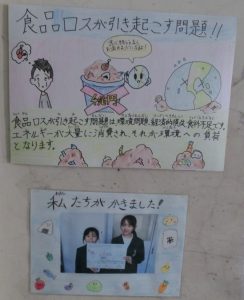 食品ロスが引き起こす問題!!
食品ロスが引き起こす問題は環境問題、経済的損失、食料不足です。
エネルギーが大量に消費され、それが環境への負荷
となります。
私たちがかきました!